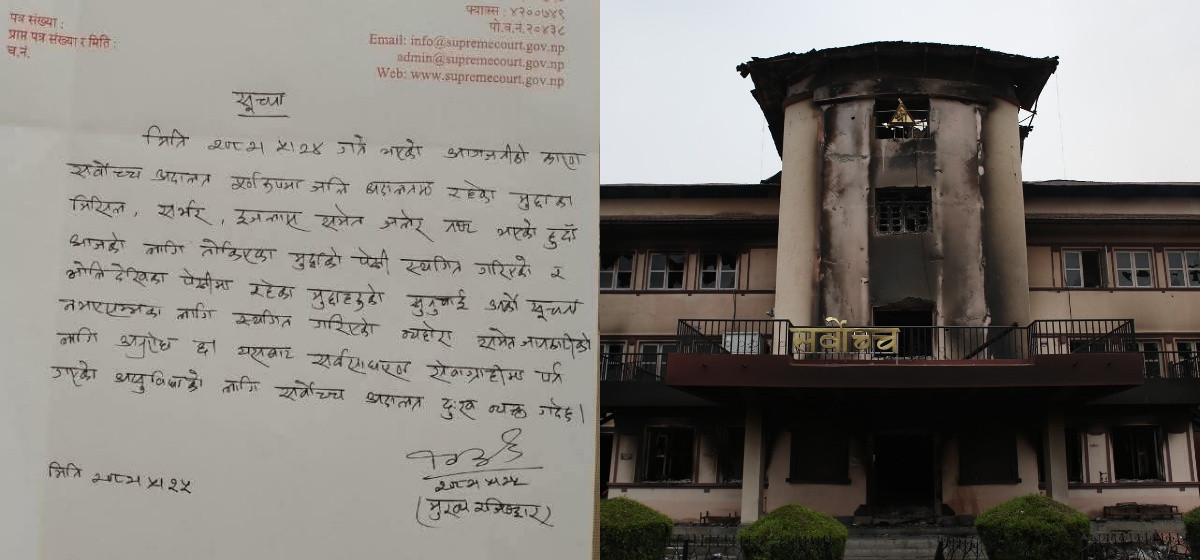 फ्याक्स : ४२००७४९
पो.व.नं.२०४३८
Email: info@supremecourt.gov.np
admin@supremecourt.gov.np
Web: www.supremecourt.gov.np
पत्र संख्या :
प्राप्त पत्र संख्या र मिति :
च.नं.
सूचना
मिति २०८२।५।२४ गते भएको आगजनीको कारण
सर्वोच्च अदालत पूर्णरुपमा जलि अदालतमा रहेका मुद्दाका
मिसिल, सर्भर, इजलास समेत जलेर नष्ट भएको हुदाँ
आजको लागि तोकिएका मुद्दाको पेशी स्थगित गरिएको र
भोलि देखिका पेशीमा रहेका मुद्दाहरुको सुनुवाई अर्को सूचना
नभएसम्मका लागि स्थगित गरिएको व्यहोरा समेत जानकारीको
लागि अनुरोध छ। यसबाट सर्वसाधारण सेवाग्राहीमा पर्न
गएको असुविधाको लागि सर्वोच्च अदालत दुःख व्यक्त गर्दछ।
२०८२।५।२५
(मुख्य रजिष्ट्रार)
मिति २०८२।५।२५
सर्वोच्च